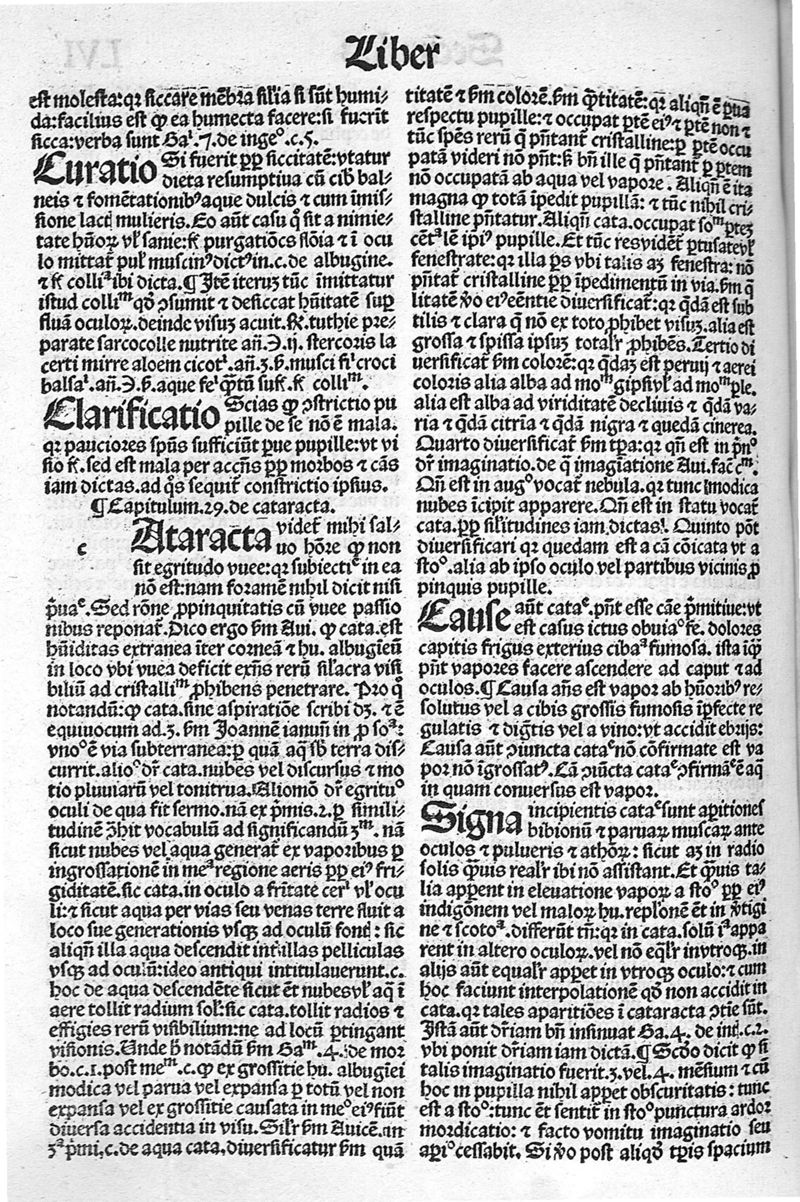 Liber
est molesta: qr siccare mẽbra silĩa si sũt humi-
da: facilius est ꝙ ea humecta facere: si fuerit
sicca: verba sunt Gaˡ. 7. de ingeᵒ. c. 5.
Curatio Si fuerit ꝓp̱ siccitatẽ: vtatur
dieta resumptiua cũ cib̃ bal-
neis ⁊ fomẽtationibꝰ aque dulcis ⁊ cum ĩmis-
sione lacť mulieris. Eo aũt casu q̃ sit a nimie-
tate hũoꝝ vľ sanie: fꝭ purgatiões flõia ⁊ ĩ ocu
lo mittať pulꝰ muscinꝰ dictꝰ in. c. de albugine.
⁊ fꝭ colliᵃ ibi dicta. ¶ Itẽ iterũ tũc ĩmittatur
istud colliᵐ qð ↄsumit ⁊ desiccat hũitatẽ suꝑ
fluã oculoꝝ. deinde visuꝫ acuit. ℞. tuthie pre-
parate sarcocolle nutrite añ. ℈. ij. stercoris la
certi mirre aloem cicotˡ. añ. ʒ. ß. musci fiˡ croci
balsaˡ. añ. ℈. ß. aque feˡ q̃tũ suf. fꝭ colliᵐ.
Clarificatio Scias ꝙ ↄstrictio pu
pille de se nõ ẽ mala.
qr pauciores spũs sufficiũt ꝑue pupille: vt vi
sio fꝭ. sed est mala per accñs ꝓp̱ morbos ⁊ cãs
iam dictas. ad q̃s sequiť constrictio ipsius.
¶ Capitulum. 29. de cataracta.
c Ataracta videť mihi sal-
uo hõre ꝙ non
sit egritudo vuee: qr subiectiᵉ in ea
nõ est: nam foramẽ nihil dicit nisi
p̃uaᵉ. Sed rõne ꝓpinquitatis cũ vuee passio
nibus reponať. Dico ergo ẞm Aui. ꝙ cata. est
hũiditas extranea ĩter corneã ⁊ hu. albugieũ
in loco vbi vuea deficit exñs rerũ silĩacra visi
biliũ ad cristalliᵐ ꝓhibens penetrare. Pro q̃
notandũ: ꝙ cata. sine aspiratiõe scribi dꝫ. ⁊ ẽ
equiuocum ad. 3. ẞm Joannẽ ianuĩ in ꝓ soᵃ:
vnoᵒ ẽ via subterranea: ꝑ quã aq̃ sb̃ terra dis-
currit. alioᵒ dř cata. nubes vel discursus ⁊ mo
tio pluuiarũ vel tonitrua. Aliomõ dř egrituᵒ
oculi de qua fit sermo. nã ex p̃mis. 2. ꝑ simili-
tudinẽ ↄ̃hit vocabulũ ad significandũ 3ᵐ. nã
sicut nubes vel aqua generať ex vaporibus ꝑ
ingrossationẽ in meᵃ regione aeris ꝓp̱ eiꝰ fri-
giditatẽ. sic cata. in oculo a fřitate cerˡ vľ ocu
li: ⁊ sicut aqua per vias seu venas terre fluit a
loco sue generationis vsqꝫ ad oculũ fontˢ: sic
aliqñ illa aqua descendit inť illas pelliculas
vsqꝫ ad oculũ: ideo antiqui intitulauerunt. c.
hoc de aqua descendẽte sicut ẽt nubes vľ aq̃ ĩ
aere tollit radium solˢ: sic cata. tollit radios ⁊
effigies rerũ visibilium: ne ad locũ ꝑtingant
visionis. Unde h̃ notãdũ ẞm Gaᵐ. 4. de mor
bo. c. 1. post meᵐ. c. ꝙ ex grossitie hu. albugiei
modica vel parua vel expansa ꝑ totũ vel non
expansa vel ex grossitie causata in meᵒ eiꝰ fiũt
diuersa accidentia in visu. Silř ẞm Auicẽ. an
3ᵃ p̃mi. c. de aqua cata. diuersificatur ẞm quã
titatẽ ⁊ ẞm colorẽ. ẞm q̃titatẽ: qr aliqñ ẽ ꝑua
respectu pupille: ⁊ occupat ꝑtẽ eiꝰ ⁊ ꝑtẽ non ⁊
tũc spẽs rerũ q̃ p̃ñtant̃ cristalline: ꝑ ꝑtẽ occu
patã videri nõ pñt: ß bñ ille q̃ p̃ñtant̃ ꝑ ꝑtem
nõ occupatã ab aqua vel vapore. Aliqñ ẽ ita
magna ꝙ totã ĩpedit pupillã: ⁊ tũc nihil cri-
stalline p̃ñtatur. Aliqñ cata. occupat soᵐ ꝑteꝫ
cẽtᵃlẽ ipiꝰ pupille. Et tũc res vidẽť ꝑtusate vľ
fenestrate: qr illa ꝑs vbi talis aꝫ fenestra: nõ
p̃ñtať cristalline ꝑp̱ ĩpedimentũ in via. ẞm q̃
litatẽ v̉o eiꝰ eẽntie diuersificať: qr q̃dã est sub
tilis ⁊ clara q̃ nõ ex toto ꝓhibet visuꝫ. alia est
grossa ⁊ spissa ipsuꝫ totalř ꝓhibẽs. Tertio di
uersificať ẞm colorẽ: qr q̃daꝫ est peruij ⁊ aerei
coloris alia alba ad moᵐ gipsi vľ ad moᵐ ꝑle.
alia est alba ad viriditatẽ decliuis ⁊ q̃dã va-
ria ⁊ q̃dã citrĩa ⁊ q̃dã nigra ⁊ quedã cinerea.
Quarto diuersificať ẞm tꝑa: qr qñ est in p̃nᵒ
dř imaginatio. de q̃ imagĩatione Aui. facᵗ cᵐ.
Qñ est in augᵒ vocať nebula. qr tunc modica
nubes ĩcipit apparere. Qñ est in statu vocať
cata. ꝓp̱ silitudines iam dictas. Quinto põt
diuersificari qr quedam est a cã cõicata vt a
stoᵒ. alia ab ipso oculo vel partibus vicinis ꝓ
pinquis pupille.
Cause aũt cataᵉ. pñt esse cãe p̃mitiue: vt
est casus ictus obuiaᵒ fe. dolores
capitis frigus exterius cibaᵃ fumosa. ista iq̃ꝫ
pñt vapores facere ascendere ad caput ⁊ ad
oculos. ¶ Causa añs est vapor ab hũoribꝰ re-
solutus vel a cibis grossis fumosis ĩꝑfecte re
gulatis ⁊ digẽtis vel a vino: vt accidit ebrijs:
Causa aũt ↄiuncta cataᵉ nõ cõfirmate est va
por nõ ĩgrossatꝰ. Cã ↄiũcta cataᵉ ↄfirmaᵉ ẽ aq̃
in quam conuersus est vapor.
Signa incipientis cataᵉ sunt aꝑitiones
bibionũ ⁊ paruaꝝ muscaꝝ ante
oculos ⁊ pulueris ⁊ athõꝝ: sicut aꝫ in radio
solis q̃uis realř ibi nõ assistant. Et q̃uis ta-
lia apparent in eleuatione vapoꝝ a stoᵒ ꝓp̱ eiꝰ
indigõnem vel maloꝝ hu. replõnẽ ẽt in v̉tigi
ne ⁊ scotoᵃ. differũt tñ: qr in cata. solũ iᵃ appa
rent in altero oculoꝝ. vel nõ eq̃lř in vtroqꝫ. in
alijs aũt equalř apꝑet in vtroqꝫ oculo: ⁊ cum
hoc faciunt interpolationẽ qð non accidit in
cata. qr tales aparitiões ĩ cataracta ↄtie sũt.
Istã aũt dřiam bñ insinuat Ga. 4. de inť. c. 2.
vbi ponit dřiam iam dictã. ¶ Scðo dicit ꝙ si
talis imaginatio fuerit. 3. vel. 4. mẽsium ⁊ cũ
hoc in pupilla nihil apꝑet obscuritatis: tunc
est a stoᵒ: tunc ẽt sentiť in stoᵒ punctura ardor
mordicatio: ⁊ facto vomitu imaginatio seu
apriᵒ cessabit. Si v̉o post aliqð tꝑis spacium